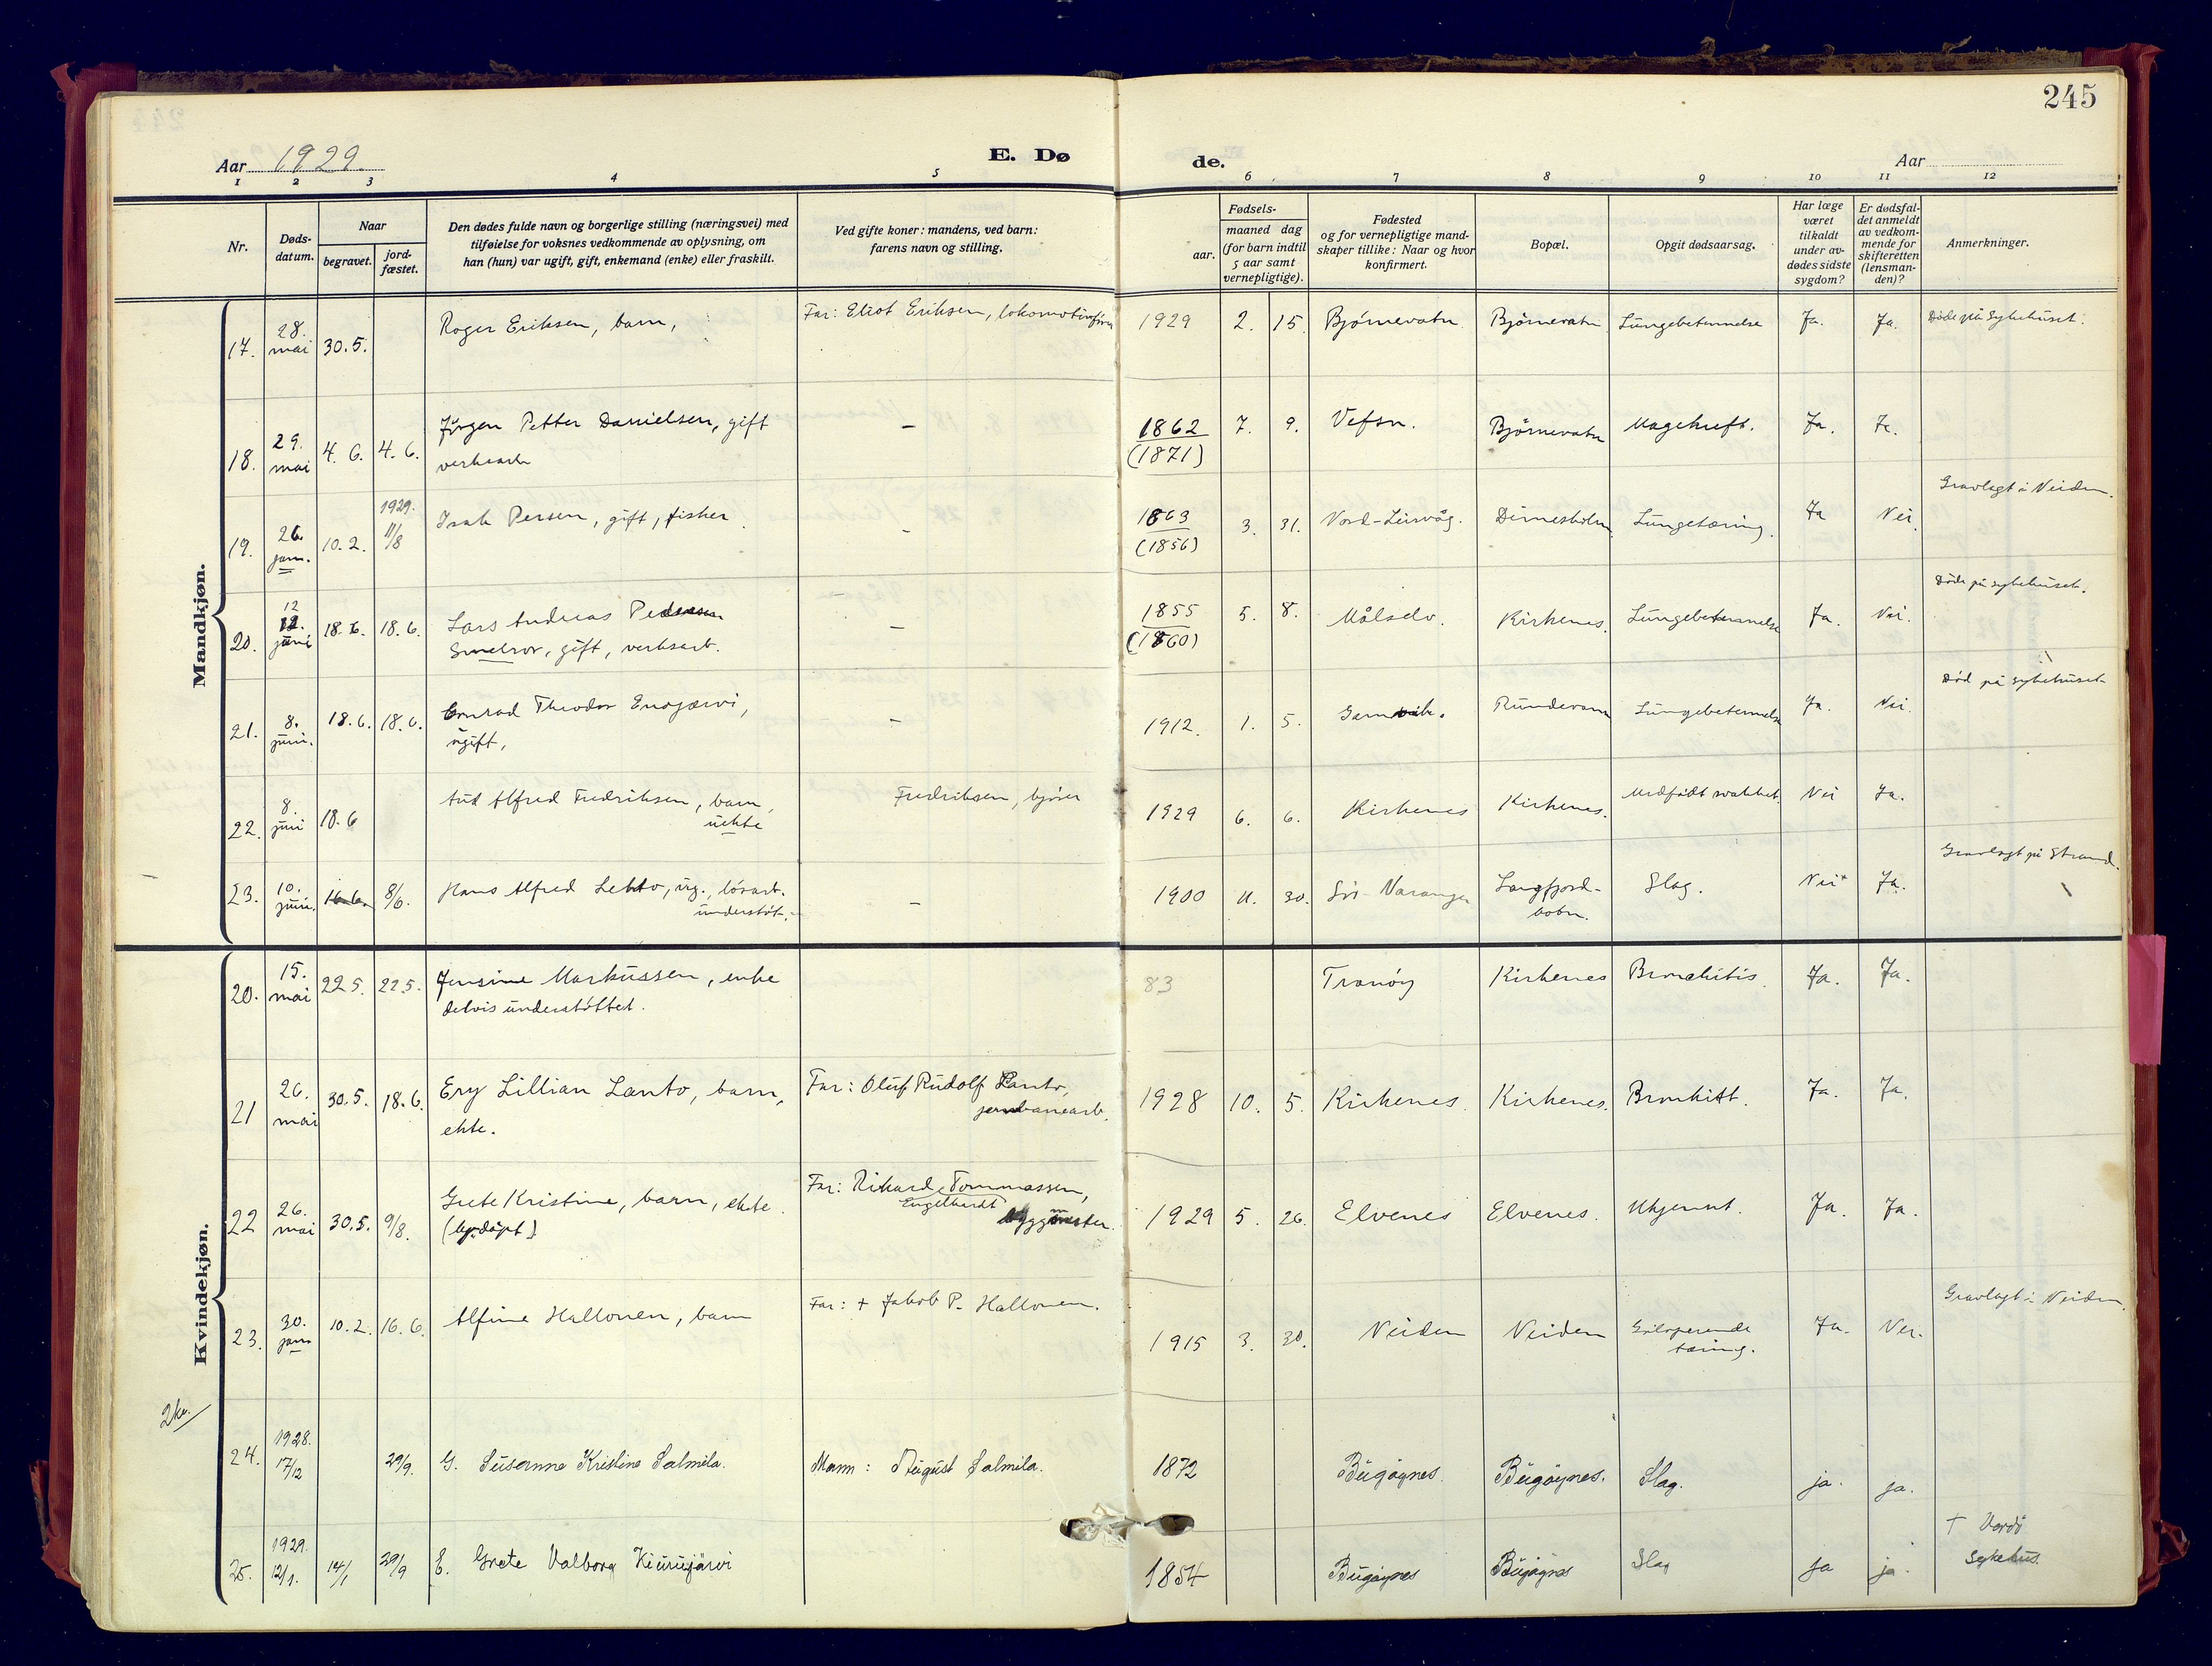 245
Aar 1929.
E. Dø
de.
Aar
1 2 3 4 5 6 7 8 9 10 11 12
Nr.
Døds-
datum.
Naar
begravet.
jord-
fæstet.
Den dødes fulde navn og borgerlige stilling (næringsvei) med
tilføielse for voksnes vedkommende av oplysning, om
han (hun) var ugift, gift, enkemand (enke) eller fraskilt.
Ved gifte koner: mandens, ved barn:
farens navn og stilling.
Fødsels-
aar.
maaned dag
(for barn indtil
5 aar samt
vernepligtige).
Fødested
og for vernepligtige mand-
skaper tillike: Naar og hvor
konfirmert.
Bopæl.
Opgit dødsaarsag.
Har læge
været
tilkaldt
under av-
dødes sidste
sygdom?
Er dødsfal-
det anmeldt
av vedkom-
mende for
skifteretten
(lensman-
den)?
Anmerkninger.
Mandkjøn.
17. 28. mai 30.5. Roger Eriksen, barn, Far: Eliot Eriksen, lokomotivfører 1929 2. 15. Bjørnevatn Bjørnevatn Lungebetennelse Ja. Ja. Døde på sykehuset.
18. 29. mai 4. 6. 4. 6. Jörgen Petter Danielsen, gift
verksarb – 1862 (1871) 7. 9. Vefsn. Björnevatn Magekreft. Ja. Ja.
19. 26. jan. 10.2. 1929. 11/8 Isak Persen, gift, fisker – 1863 (1856) 3. 31. Lungetæring. Ja Nei. Gravlagt i Neiden.
20. 12 juni 18.6. 18.6. Lars Andreas Pedersen
Smelror, gift, verksarb. – 1855 (1860) 5. 8. Målselv. Kirkenes. Lungebetennelse Ja. Nei. Döde på sykehuset.
21. 8. juni. 18.6. 18.6. Conrad Theodor Enojærvi,
ugift, – 1912. 1. 5. Lungebetennelse Ja. Nei. Död på sykehuset
22. 8. juni 18.6 Alfred Fredriksen, barn,
uekte Fredriksen, 1929 6. 6. Kirkenes Kirkenes. Medfødt svakhet. Nei Ja.
23. 10. juni. 16.6. 8/6. Hans Alfred Lehto, ug., lösarb.
understöt. – 1900 11. 30. Sör-Varanger Langfjord-
botn. Slag. Nei Ja. Gravlagt på Strand.
Kvindekjøn.
20. 15. mai 22 5. 22 5. Jensine Markussen, enke
delvis understöttet. 83 Tranöy Kirkenes Bronchitis. Ja. Ja.
21 26. mai 30.5. 18.6. Ery Lillian Lanto, barn,
ekte. Far: Oluf Rudolf Lanto,
jernbanearb. 1928 10. 5. Kirkenes. Kirkenes. Bronkitt. Ja. Ja.
22 26. mai 30.5. 9/8. Grete Kristine, barn, ekte.
(hj.döpt) Far: Rikard Tommassen,
Engelhardt
byggmester. 1929 5. 26. Elvenes Elvenes. Ukjennt. Ja. Ja.
23. 30. jan 10.2. 16.6. Alfine Hallonen, barn Far: + Jakob P. Hallonen. 1915 3. 30. Neiden Neiden Galoperende
tæring. Ja. Nei. Gravlagt i Neiden
2 kv.
24. 1928. 17/12 29/9. G. Susanna Kristine Salmila. Mann: August Salmila. 1872 Bugöynes. Bugöynes. Slag. ja. ja.
25. 1929. 12/1. 14/1 29/9 E. Grete Valborg Kiurujärvi 1854 Bugöynes Bugöynes Slag ja ja. † Vardö
sykehus.